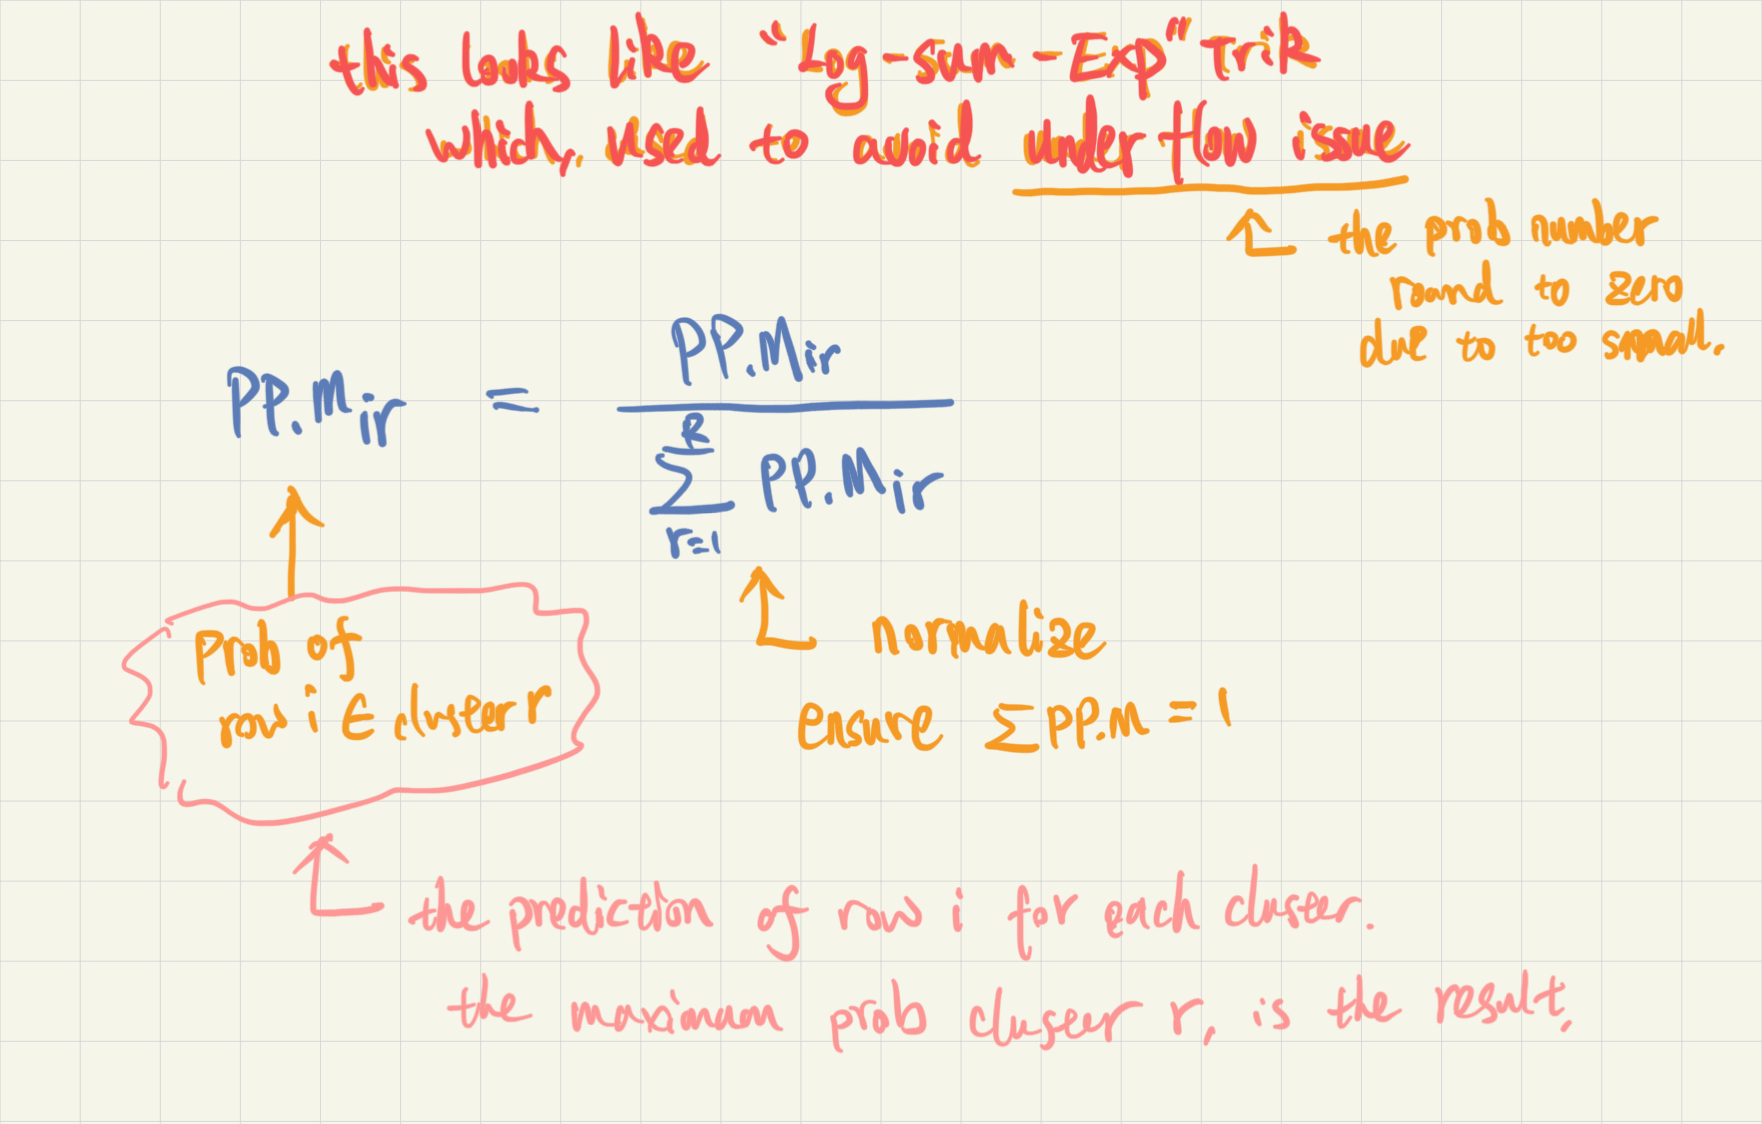 this looks like "Log-sum-Exp" Trik
which, used to avoid underflow issue
the prob number
round to zero
due to too small.
PP.M_ir = PP.M_ir / ∑_{r=1}^{R} PP.M_ir
prob of
row i ∈ cluster r
normalize
ensure ∑PP.M = 1
the prediction of row i for each cluster.
the maximum prob cluster r, is the result.